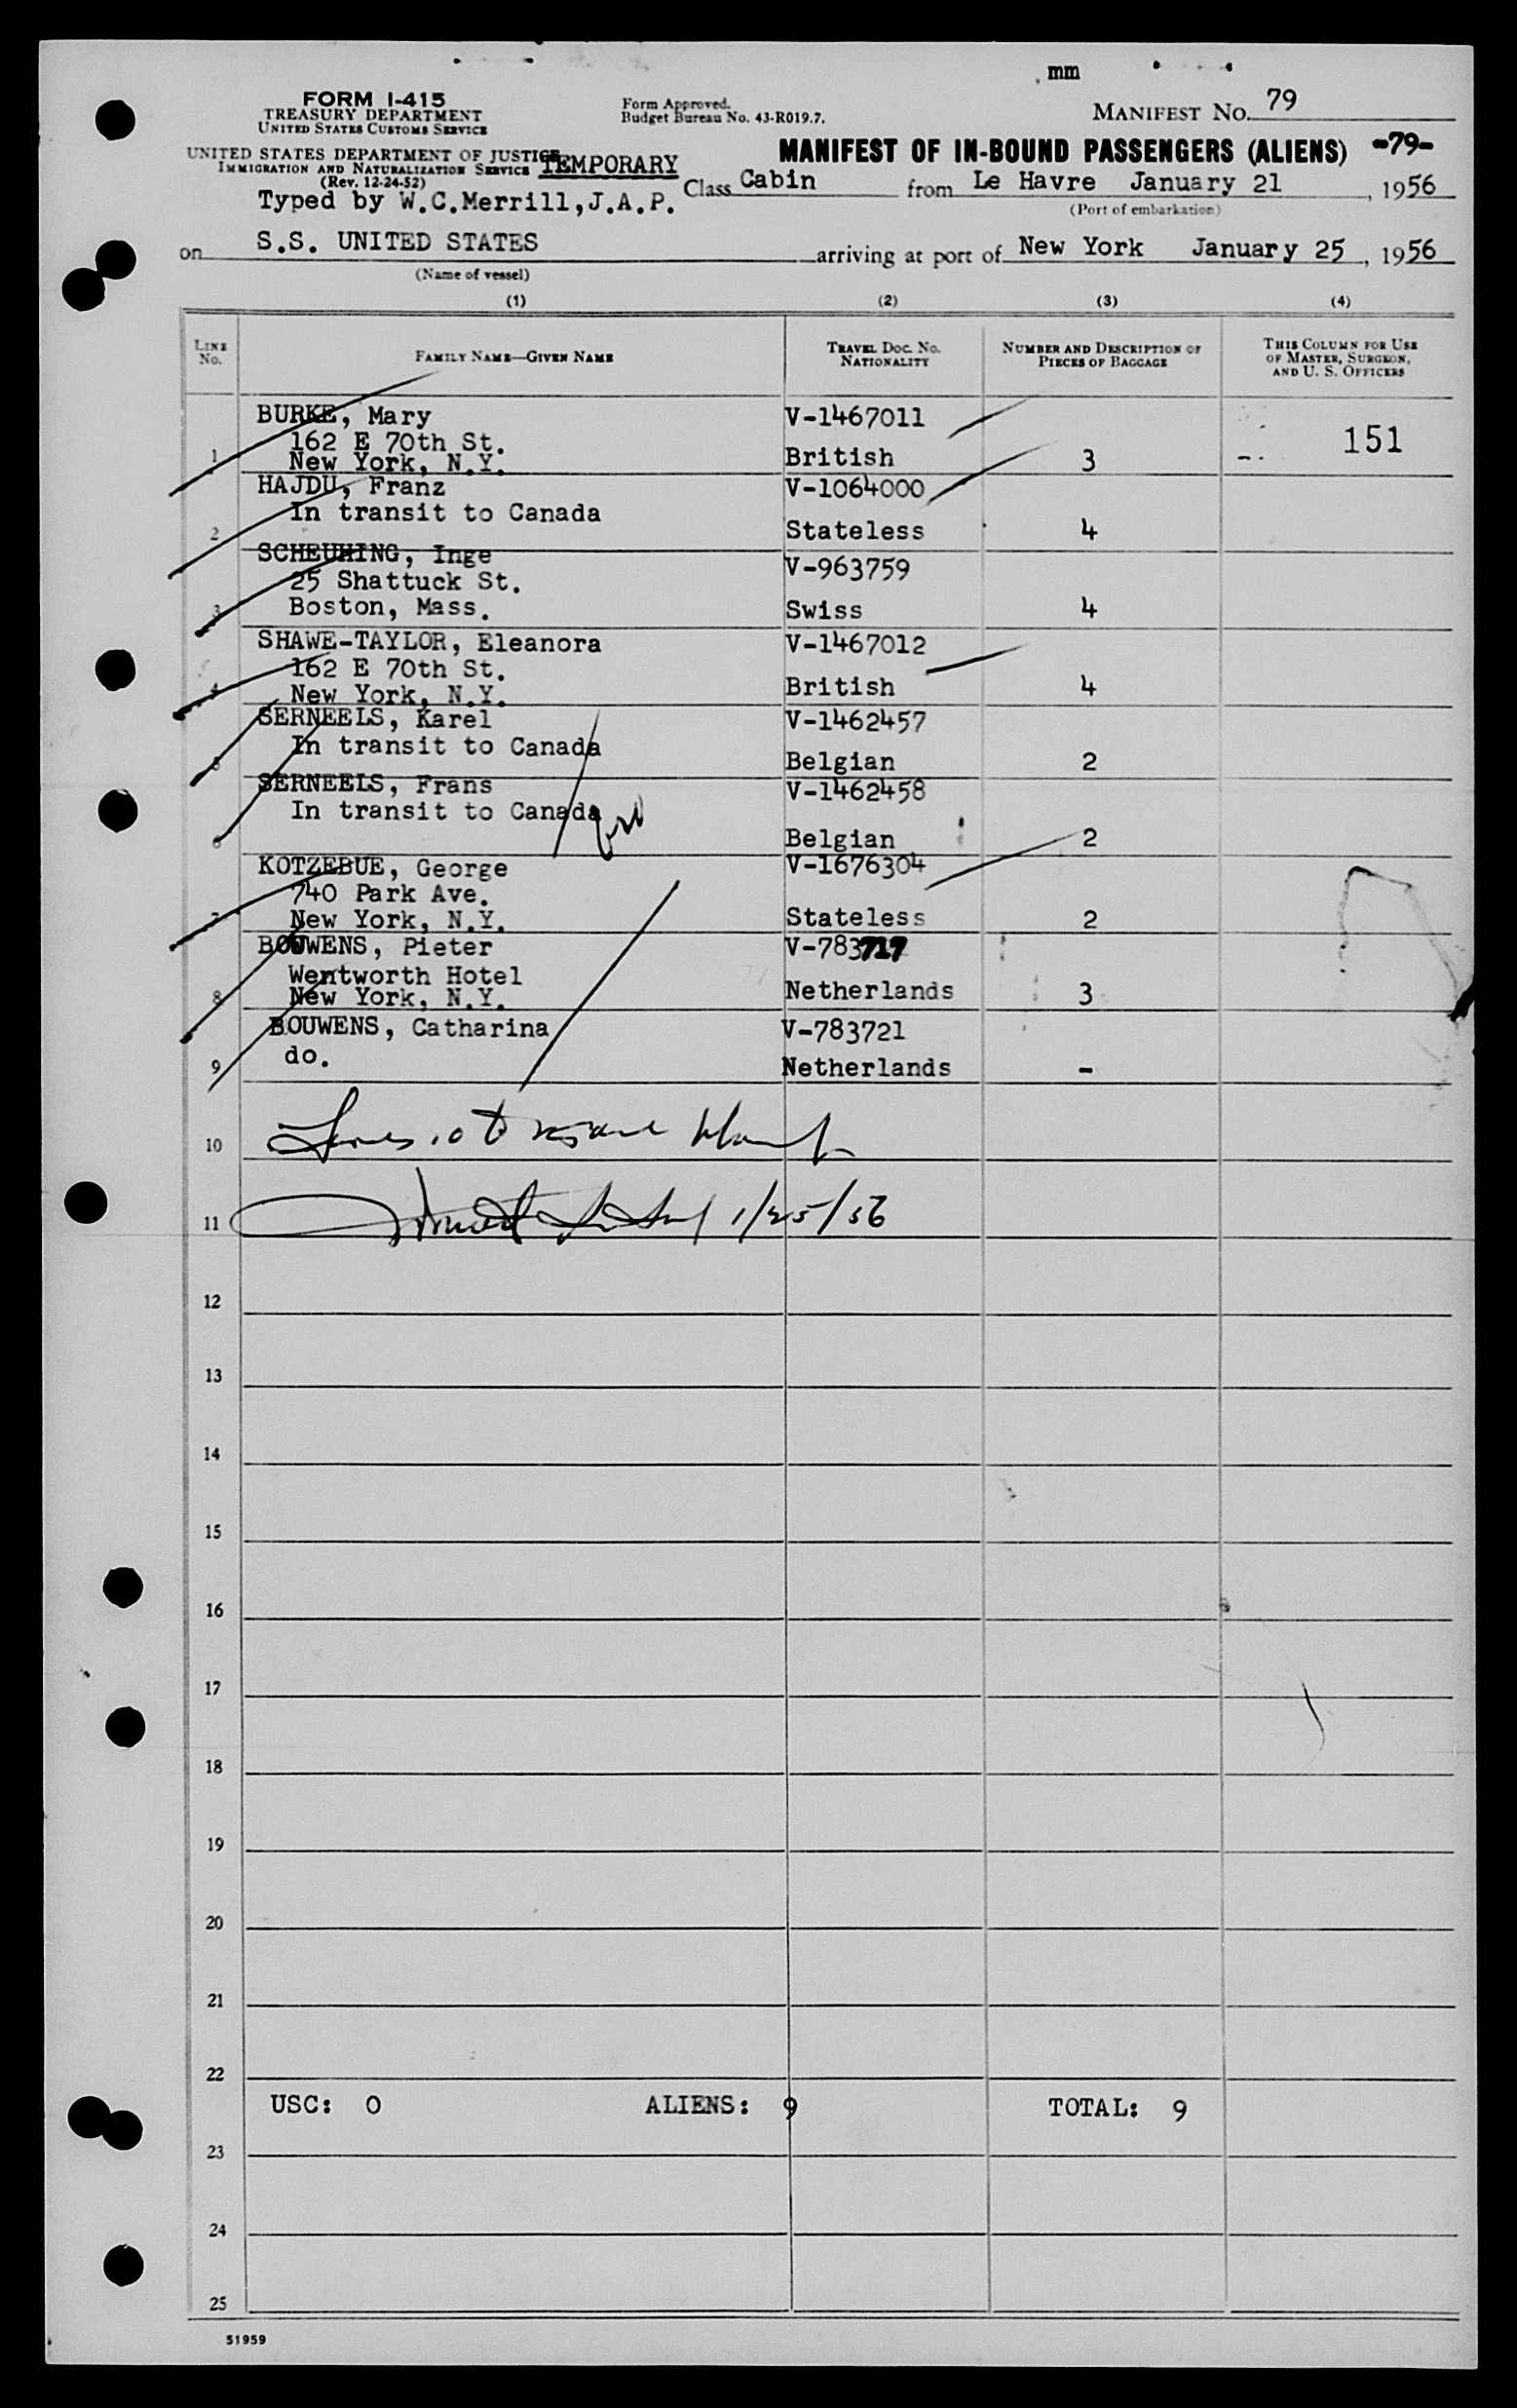 mm
FORM I-415
TREASURY DEPARTMENT
UNITED STATES CUSTOMS SERVICE
Form Approved.
Budget Bureau No. 43-R019.7.
MANIFEST NO. 79
UNITED STATES DEPARTMENT OF JUSTICE
IMMIGRATION AND NATURALIZATION SERVICE
(Rev. 12-24-52)
TEMPORARY
MANIFEST OF IN-BOUND PASSENGERS (ALIENS) -79-
Typed by W.C.Merrill,J.A.P.
Class Cabin from Le Havre January 21, 1956
(Port of embarkation)
on S.S. UNITED STATES arriving at port of New York January 25, 1956
(Name of vessel)
(1) (2) (3) (4)
LINE No.
FAMILY NAME—GIVEN NAME
TRAVEL DOC. NO. NATIONALITY
NUMBER AND DESCRIPTION OF PIECES OF BAGGAGE
THIS COLUMN FOR USE OF MASTER, SURGEON, AND U. S. OFFICERS
BURKE, Mary V-1467011
162 E 70th St. 151
1 New York, N.Y. British 3
HAJDU, Franz V-1064000
In transit to Canada
2 Stateless 4
SCHEUHING, Inge V-963759
25 Shattuck St.
3 Boston, Mass. Swiss 4
SHAWE-TAYLOR, Eleanora V-1467012
162 E 70th St.
4 New York, N.Y. British 4
SERNEELS, Karel V-1462457
In transit to Canada
5 Belgian 2
SERNEELS, Frans V-1462458
In transit to Canada
6 Belgian 2
KOTZEBUE, George V-1676304
740 Park Ave.
7 New York, N.Y. Stateless 2
BOUWENS, Pieter V-783717
Wentworth Hotel
8 New York, N.Y. Netherlands 3
BOUWENS, Catharina V-783721
9 do. Netherlands -
10 Lines 10 to
11 1/25/56
12
13
14
15
16
17
18
19
20
21
22
USC: 0 ALIENS: 9 TOTAL: 9
23
24
25
51959